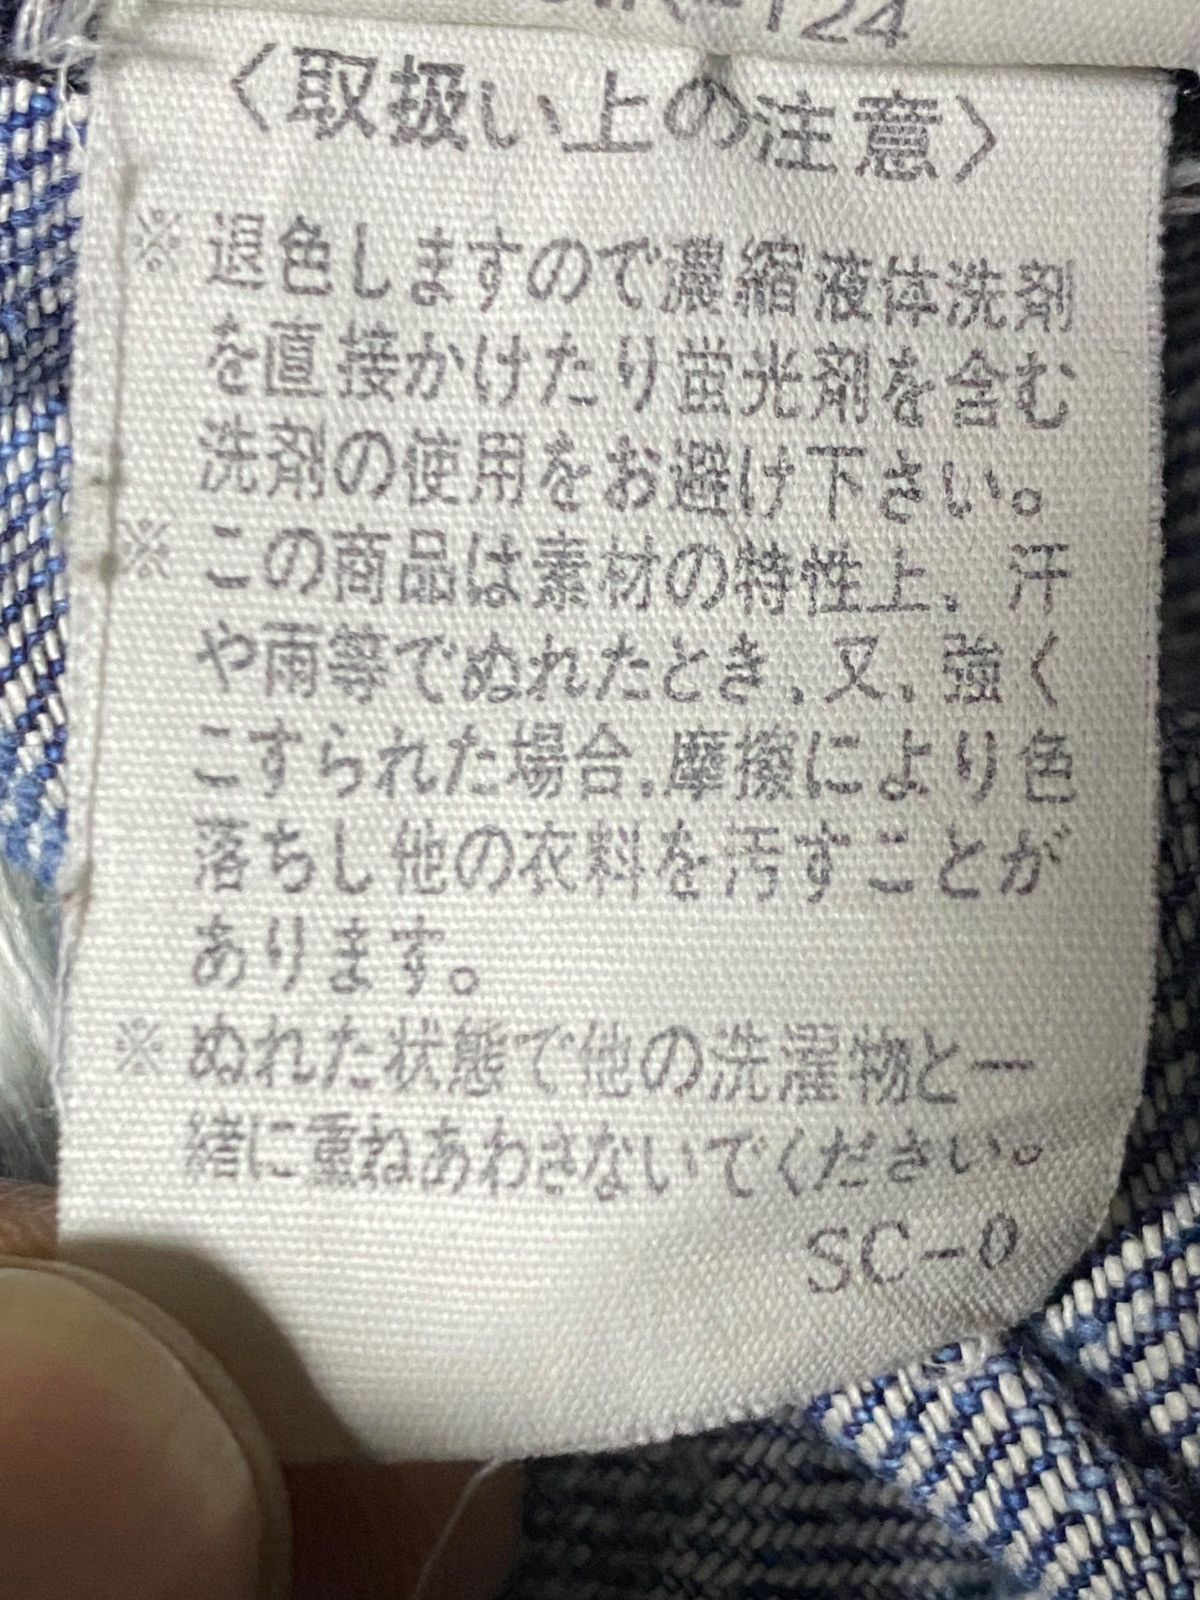 124
〈取扱い上の注意〉
※退色しますので濃縮液体洗剤
を直接かけたり蛍光剤を含む
洗剤の使用をお避け下さい。
※この商品は素材の特性上、汗
や雨等でぬれたとき、又、強く
こすられた場合、摩擦により色
落ちし他の衣料を汚すことが
あります。
※ぬれた状態で他の洗濯物と一
緒に重ねあわさないでください。
SC-0